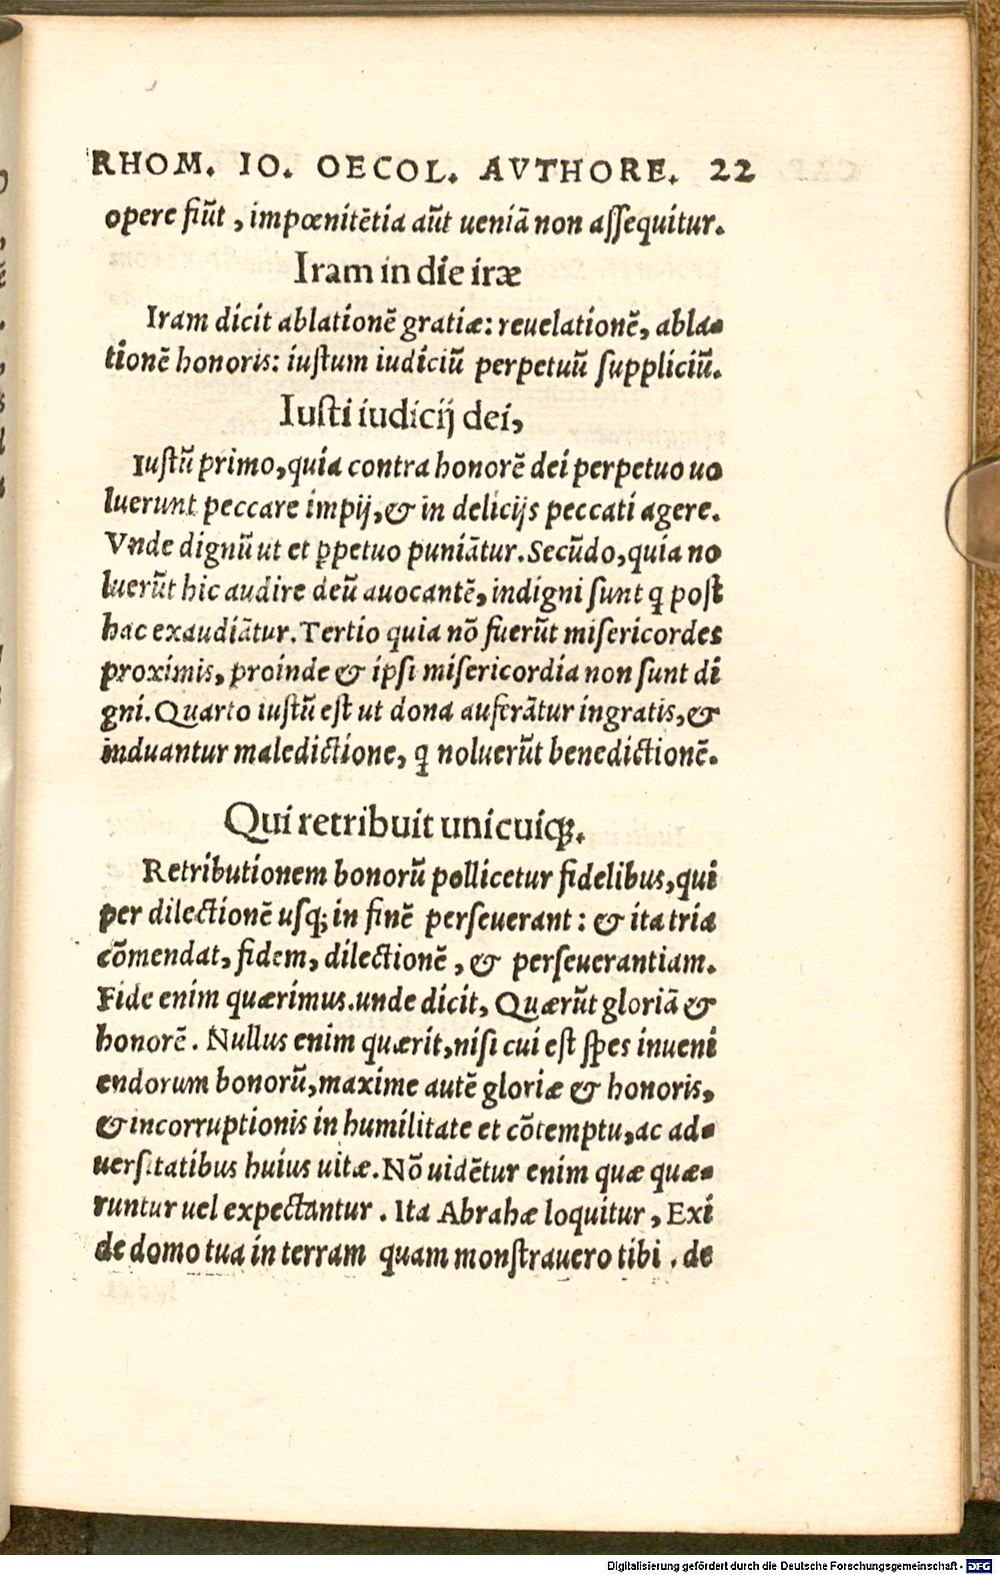 RHOM. IO. OECOL. AVTHORE. 22
opere fiūt, impœnitētia aūt ueniā non assequitur.
Iram in die iræ
Iram dicit ablationē gratiæ: reuelationē, abla-
tionē honoris: iustum iudiciū perpetuū suppliciū.
Iusti iudicij dei,
Iustū primo, quia contra honorē dei perpetuo uo
luerunt peccare impij, & in delicijs peccati agere.
Vnde dignū ut et ꝑpetuo puniātur. Secūdo, quia no
luerūt hic audire deū auocantē, indigni sunt ꝗ post
hac exaudiātur. Tertio quia nō fuerūt misericordes
proximis, proinde & ipsi misericordia non sunt di
gni. Quarto iustū est ut dona auferātur ingratis, &
induantur maledictione, ꝗ noluerūt benedictionē.
Qui retribuit unicuiqꝫ.
Retributionem bonorū pollicetur fidelibus, qui
per dilectionē usqꝫ in finē perseuerant: & ita tria
cōmendat, fidem, dilectionē, & perseuerantiam.
Fide enim quærimus. unde dicit, Quærūt gloriā &
honorē. Nullus enim quærit, nisi cui est spes inueni
endorum bonorū, maxime autē gloriæ & honoris,
& incorruptionis in humilitate et cōtemptu, ac ad-
uersitatibus huius uitæ. Nō uidētur enim quæ quæ-
runtur uel expectantur. Ita Abrahæ loquitur, Exi
de domo tua in terram quam monstrauero tibi. de
Digitalisierung gefördert durch die Deutsche Forschungsgemeinschaft - DFG